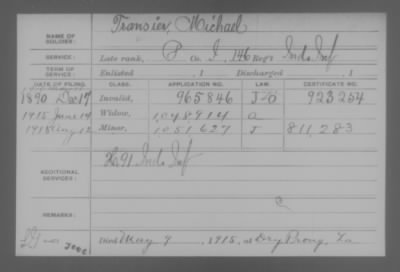 NAME OF SOLDIER: Transier, Michael
SERVICE: Late rank, P Co. I, 146 Reg't Ind. Inf
TERM OF SERVICE: Enlisted , 1 Discharged , 1
DATE OF FILING. CLASS. APPLICATION NO. LAW. CERTIFICATE NO.
1890 Dec 17 Invalid, 965846 923254
1915 June 14 Widow, 1,048,914 a
1918 Aug 12 Minor, 1,051,627 J 811,283
ADDITIONAL SERVICES: H 91 Ind. Inf
REMARKS:
Died May 9, 1915, at Dry Prong, La